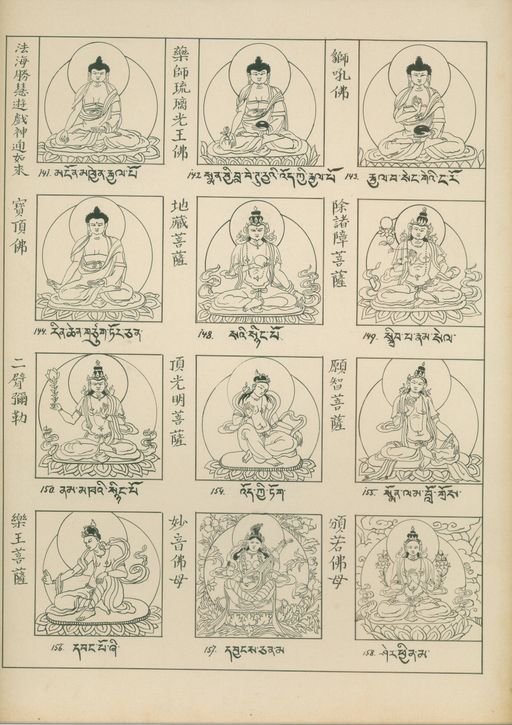 法海勝慧遊戲神通如來
141. མངོན་མཁྱེན་རྒྱལ་པོ
藥師琉璃光王佛
142. སྨན་གྱི་བླ་བེ་ཌཱུརྱའི་འོད་ཀྱི་རྒྱལ་པོ
獅吼佛
143. རྒྱལ་བ་སེང་གེའི་ང་རོ
寶頂佛
144. རིན་ཆེན་གཙུག་ཏོར་ཅན
地藏菩薩
148. སའི་སྙིང་པོ
除諸障菩薩
149. སྒྲིབ་པ་རྣམ་སེལ
二臂彌勒
150. ནམ་མཁའི་སྙིང་པོ
頂光明菩薩
154. འོད་ཀྱི་ཏོག
願智菩薩
155. སྨོན་ལམ་བློ་གྲོས
樂王菩薩
156. དབང་པོ་ཞི
妙音佛母
157. དབྱངས་ཅན་མ
頒若佛母
158. ཤེར་ཕྱིན་མ